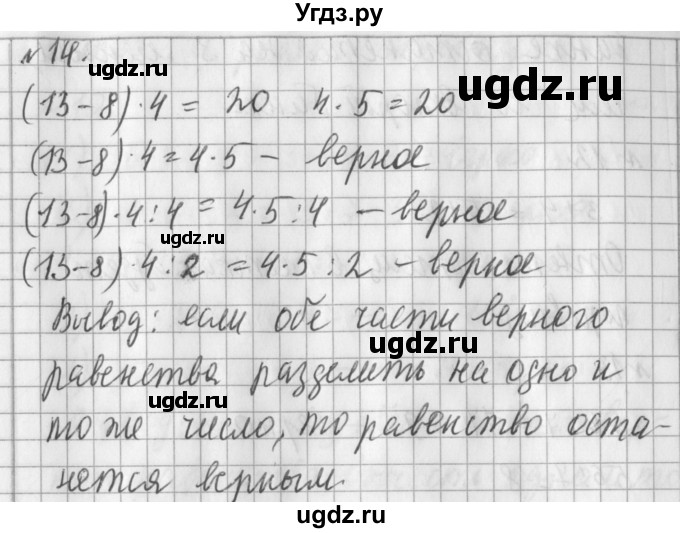 Угдз.ру
№ 14.
(13-8)·4 = 20 4·5=20
ugdz.ru
(13-8)·4=4·5 - верное
(13-8)·4:4 = 4·5:4 - верное
ugdz.ru
(13-8)·4:2 = 4·5:2 - верное
Вывод: если обе части верного
ugdz.ru
равенства разделить на одно и
ugdz.ru
то же число, то равенство оста-
нется верным.
ugdz.ru
ugdz.ru